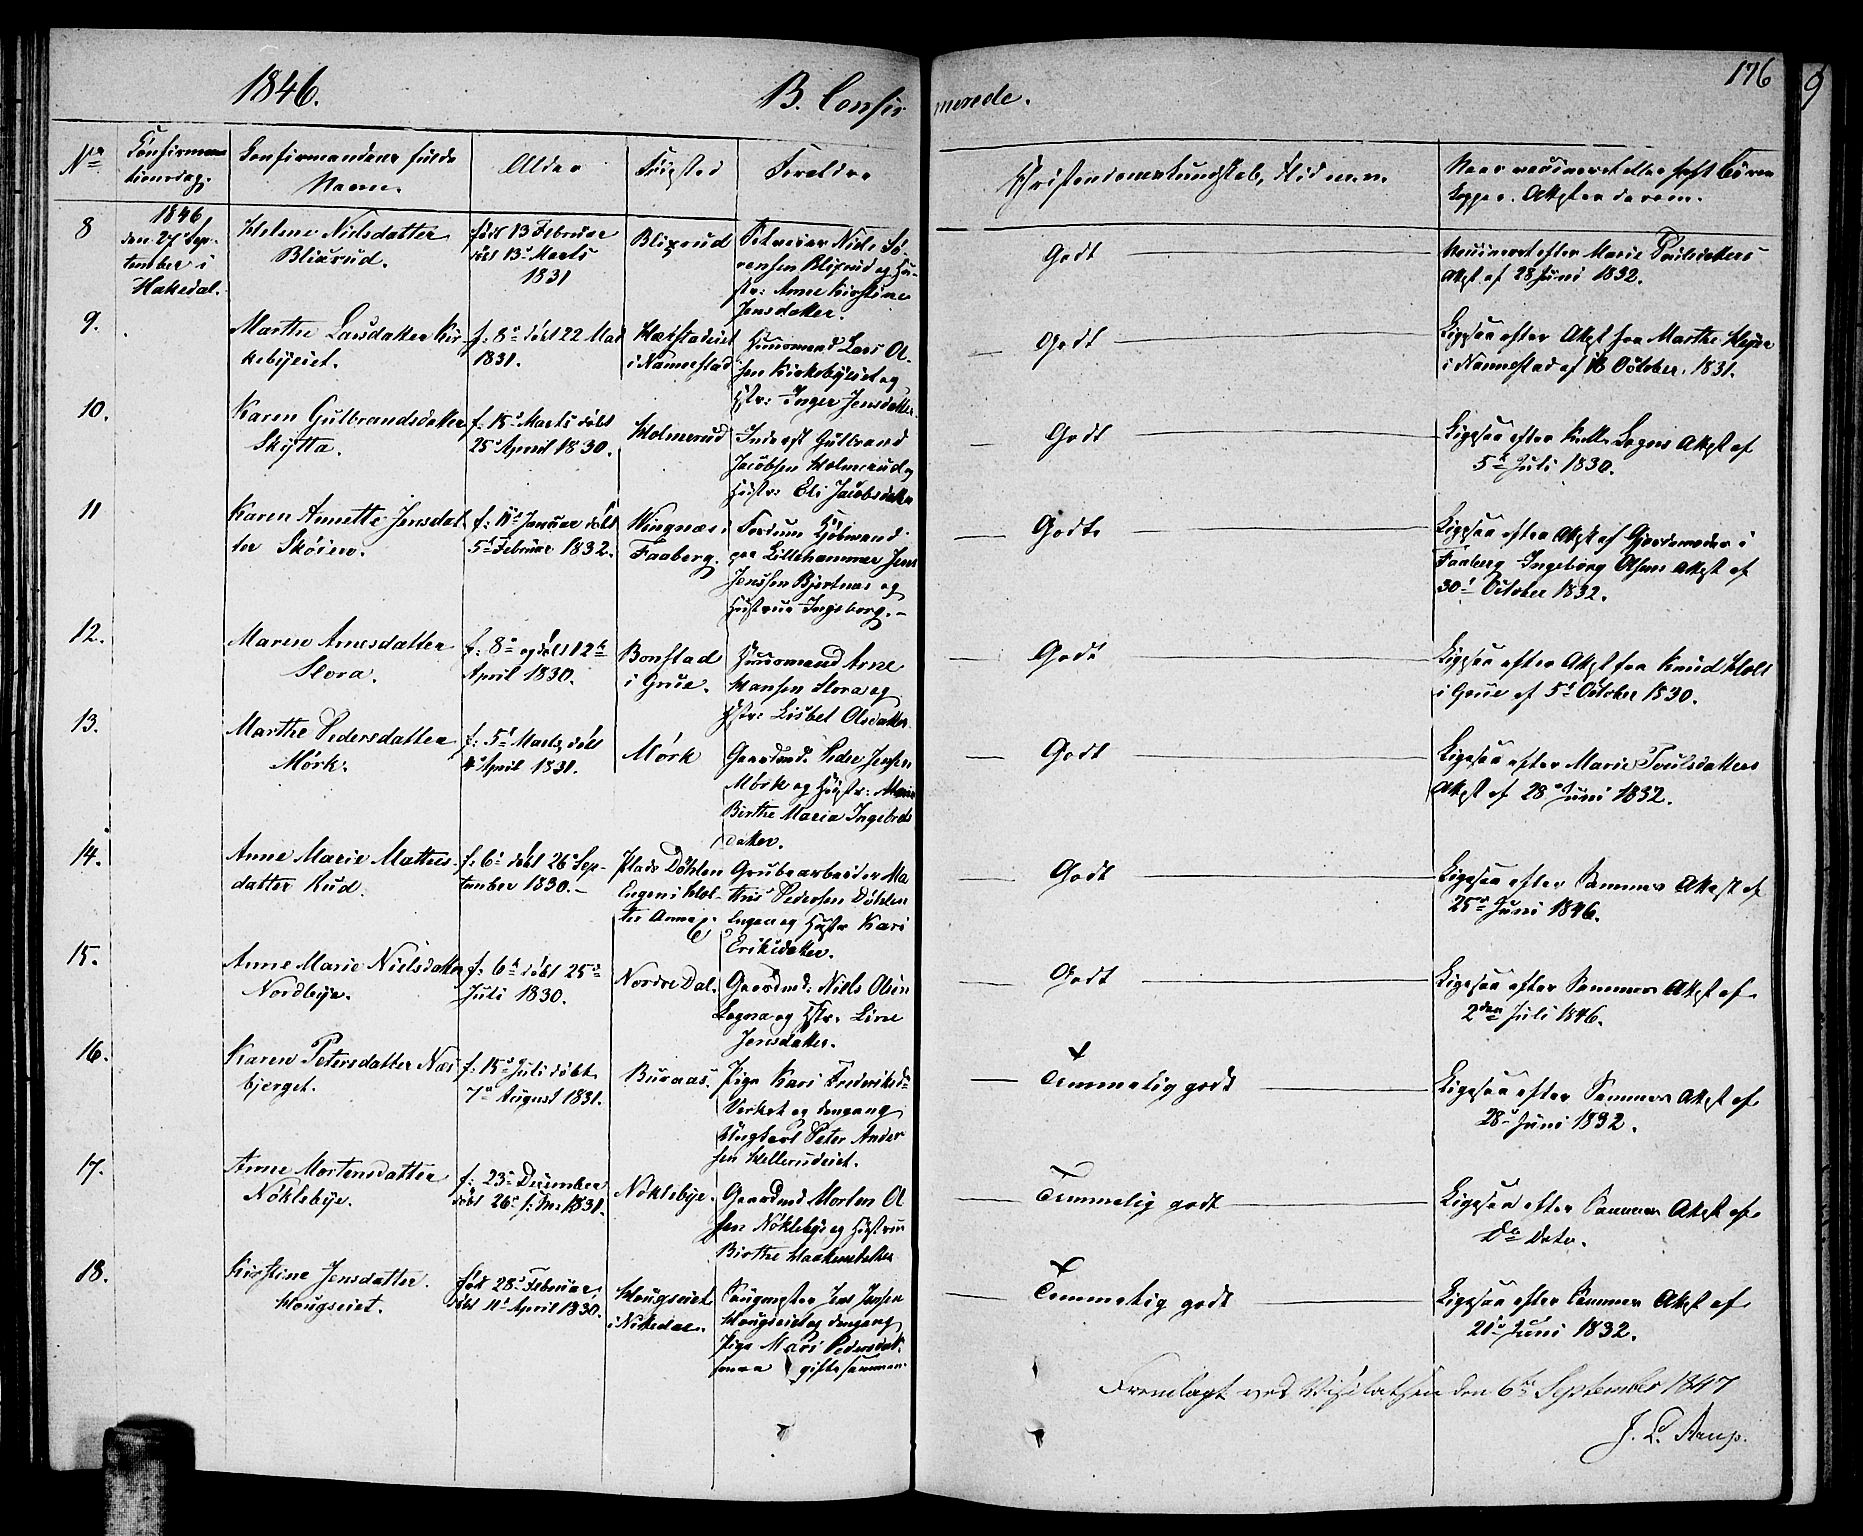 1846.
B. Confirmerede.
176
9
No
Confirmationsdag.
Confirmandens fulde
Navn.
Alder
Føgsted
Foreldre
Christendomskundskab, Flid m.v.
Naar vaccineret eller haft Børne
kopper. Attester derom.
8
1846
den 27 Sep-
tember i
Hakedal.
Helene Nielsdatter
Blixrud.
født 13 Februar
døbt 13 Marts
1831
Blixrud
Selveier Niels Sø-
rensen Blixrud og Hu-
str: Anne Kirstine
Jensdatter.
Godt
Vaccineret efter Marie Poulsdatters
Attest af 28 Juni 1832.
9.
Marthe Larsdatter Kir-
kebyeiet.
f. 8de døbt 22 Mai
1831.
i Nannestad
Huusmand Lars Ol-
sen Kirkebyeiet og
Hstr: Inger Jensdatter
Godt
Ligesaa efter Attest fra Marthe
i Nannestad af 16 October 1831.
10.
Karen Gulbrandsdatter
Skytta.
f. 15de Marts døbt
25de April 1830.
Holmerud
Inderst Gulbrand
Jacobsen Holmerud og
Hustr: Eli Jacobsdatter
Godt
Ligesaa efter Attest af
5te Juli 1830.
11
Karen Annette Jensdat
ter Skøien.
f: 11te Januar døbt
5te Februar 1832.
Wingnæs i
Faaberg.
Forhen Kjøbmand
paa Lillehammer Jens
Jenssen Bjertnæs og
Hustrue Ingeborg.-
Godt
Ligesaa efter Attest af Gjordemoder i
Faaberg Ingeborg Olsens Attest af
30te October 1832.
12.
Maren Arnesdatter
Slora.
f. 8de og døbt 12te
April 1830.
Bonstad
i Grue.
Huusmand Arne
Hansen Slora og
Hstr: Lisbet Olsdatter
Godt
Ligesaa efter Attest fra Knud Holt
i Grue af 5te October 1830.
13.
Marthe Pedersdatter
Mørk.
f. 5te Marts, døbt
4de April 1831.
Mørk
Gaardmd. Peder Jensen
Mørk og Hustr:
Birthe Maria Ingebrets
datter.
Godt
Ligesaa efter Marie Poulsdatters
Attest af 28de Juni 1832.
14.
Anne Marie Mathis-
datter Rud
f. 6te døbt 26de Sep-
tember 1830.-
Plads Døhlen
Engen i Hol-
ter Annex.
Grubearbeider Ma
this Pedersen Døhlen
Engen og Hustr Kari
Eriksdatter.
Godt
Ligesaa efter Sammes Attest af
25de Juni 1846.
15.
Anne Marie Nielsdatter
Nordbye.
f. 6te døbt 25de
Juli 1830.
Nordre Dal.
Gaardmd: Niels Olsen
og Hstr. Line
Jensdatter.
Godt
Ligesaa efter Sammes Attest af
2den Juli 1846.
16.
Karen Petersdatter Næs
bjerget.
f. 15de Juli døbt
7de August 1831.
Buraas.
Pige Kari Frederiksd.
Verket og dengang
Ungkarl Peter Ander
sen Hellerudeiet.
Temmelig godt
Ligesaa efter Sammes Attest af
28de Juni 1832.
17.
Anne Mortensdatter
Nøklebye.
f. 23de December
døbt 26de s: M: 1831.
Nøklebye.
Gaardmd Morten Ol
sen Nøklebye og Hustrue
Birthe Haakensdatter
Temmelig godt
Ligesaa efter Sammes Attest af
Do Dato.
18.
Kirstine Jensdatter
Hougseiet.
født 28de Februar,
døbt 11te April 1830.
Hougseiet
i Nitedal.
Saugmester Jens Jensen
Hougseiet og dengang
Pige Mari Pedersdat.
senere gifte sammen.
Temmelig godt
Ligesaa efter Sammes Attest af
21de Juni 1832.
Fremlagt ved Visitatsen den 6te September 1847
J. L. Arup.